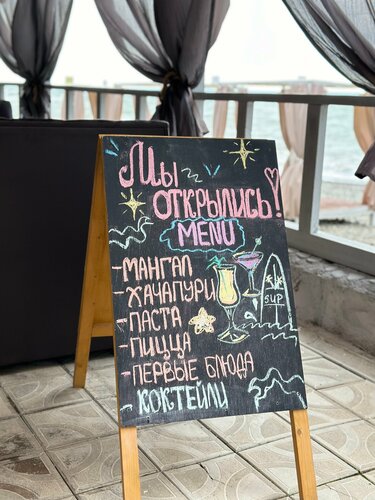 Мы
ОТКРЫЛИСЬ!
MENU
-МАНГАЛ
-ХАЧАПУРИ
-ПАСТА
-ПИЦЦА
-ПЕРВЫЕ БЛЮДА
-КОКТЕЙЛИ
SUP